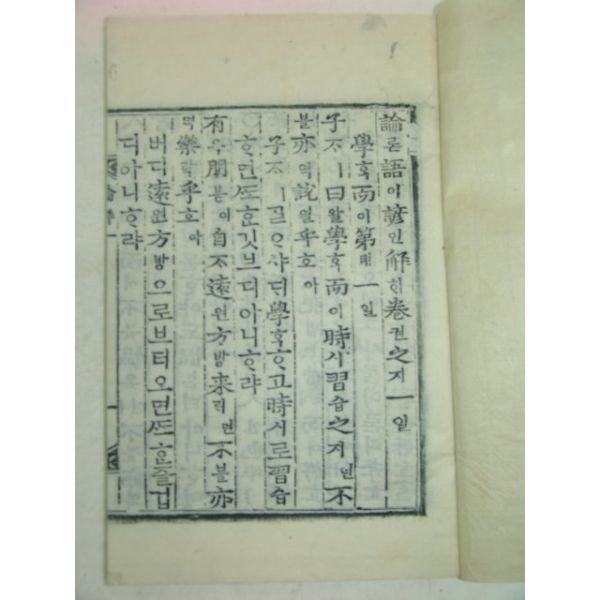 論론語어諺언解ᄒᆡ卷권之지一일
學ᄒᆞᆨ而이第뎨一일
子ᄌᆞㅣ曰왈學ᄒᆞᆨ而이時시習습之지면不
불亦역說열乎호아
子ᄌᆞㅣᄀᆞᆯᄋᆞ샤ᄃᆡ學ᄒᆞᆨᄒᆞ고時시로習습
ᄒᆞ면ᄯᅩᄒᆞᆫ깃브디아니ᄒᆞ랴
有유朋붕이自ᄌᆞ遠원方방來ᄅᆡ면不불亦
역樂락乎호아
버디遠원方방으로브터오면ᄯᅩᄒᆞᆫ즐겁
디아니ᄒᆞ랴